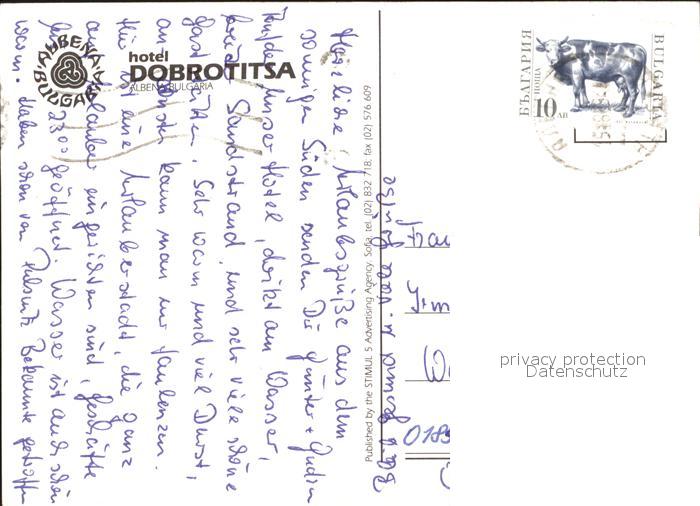 ALBENA
BULGARIA
hotel
DOBROTITSA
ALBENA BULGARIA
БЪЛГАРИЯ
ПОЩА
10 ЛВ
BULGARIA
Published by the STIMUL S Advertising Agency, Sofia, tel. (02) 832 718; fax (02) 576 609
Herzliche Urlaubsgrüße aus dem
sonnigen Süden senden Dir Günter + Gudrun
unser Hotel, direkt am Wasser,
Sandstrand, und sehr viele schöne
Gaststätten. Sehr warm und viel Durst,
kann man nur faulenzen.
Hier ist eine Urlauberstadt, die ganz
auf Urlauber eingerichtet sind, Geschäfte
23°° geöffnet. Wasser ist auch schön
warm. Haben schon von Pulsnitz Bekannte getroffen
Frau
Irm
W
0189
privacy protection
Datenschutz